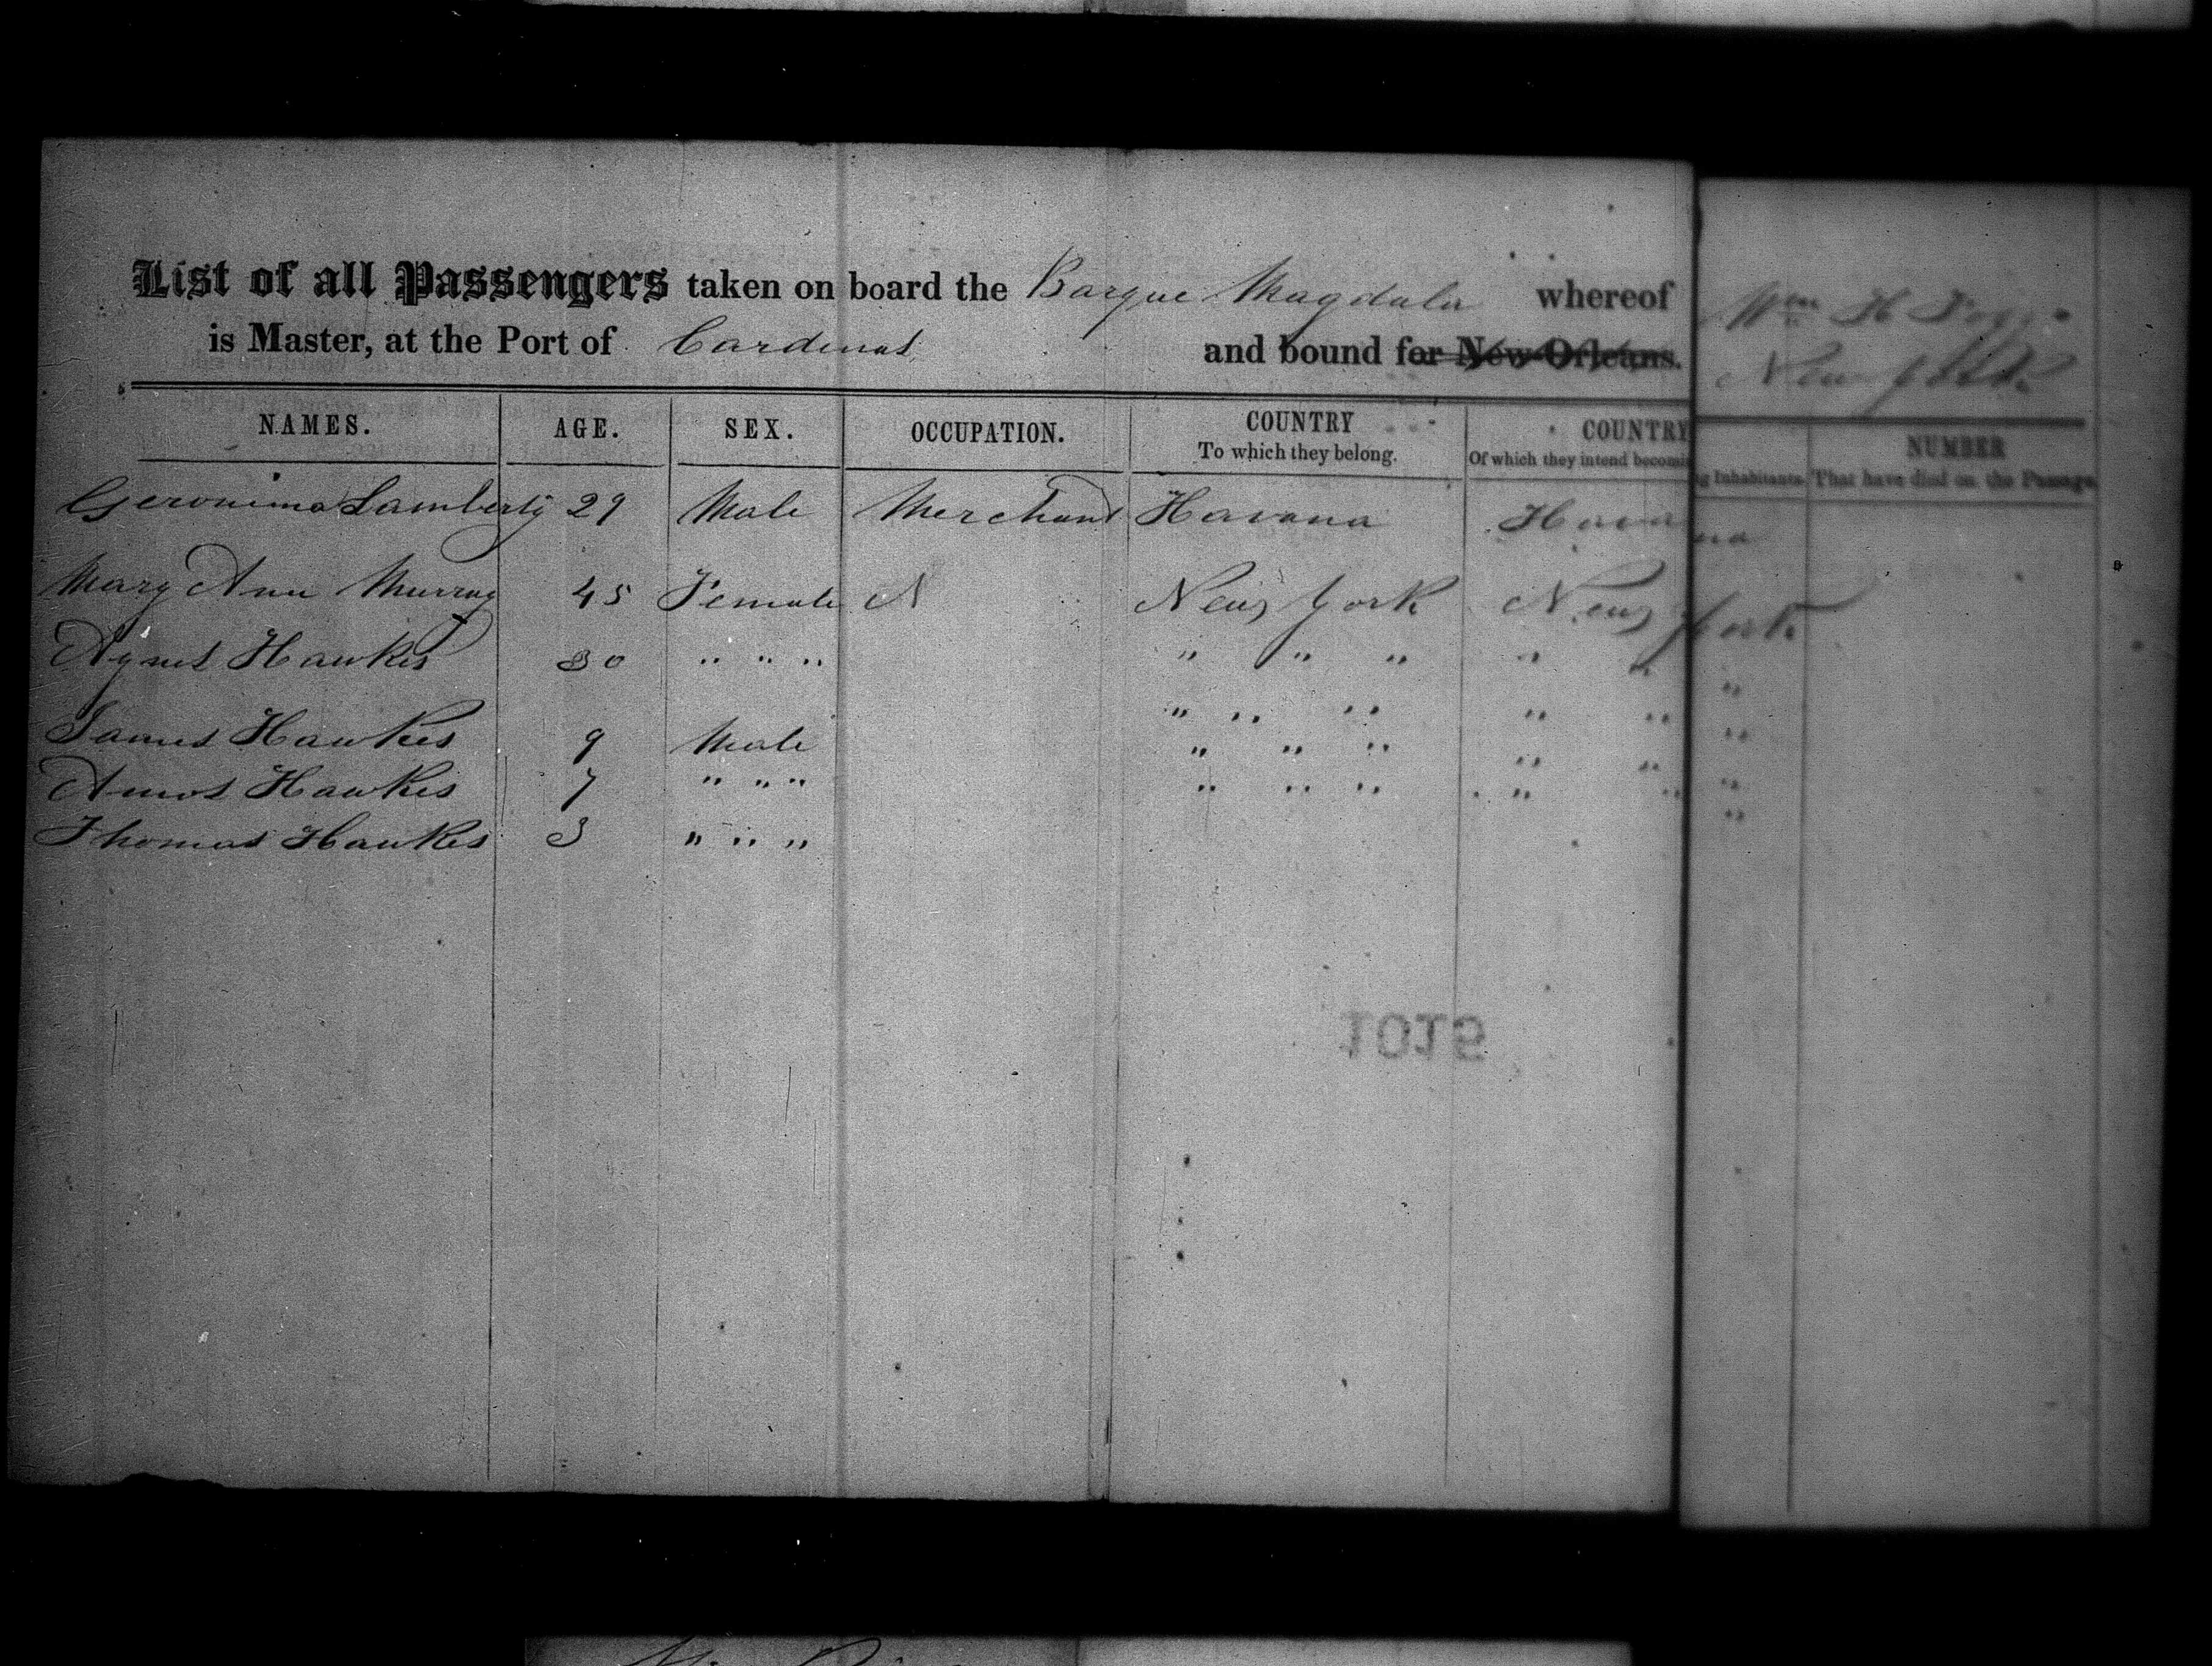 List of all Passengers taken on board the Barque Magdala whereof Wm H Fogg
is Master, at the Port of Cardenas and bound for New Orleans. New York
NAMES. AGE. SEX. OCCUPATION. COUNTRY To which they belong. COUNTRY Of which they intend becoming Inhabitants. NUMBER That have died on the Passage.
Geronimo Lamberty 29 Male Merchant Havana Havana
Mary Ann Murray 45 Female N New York New York
Agnes Hawkes 30 " " " " " " " " "
James Hawkes 9 Male " " " " " "
Amos Hawkes 7 " " " " " " " " "
Thomas Hawkes 3 " " " " " " " " "
1015